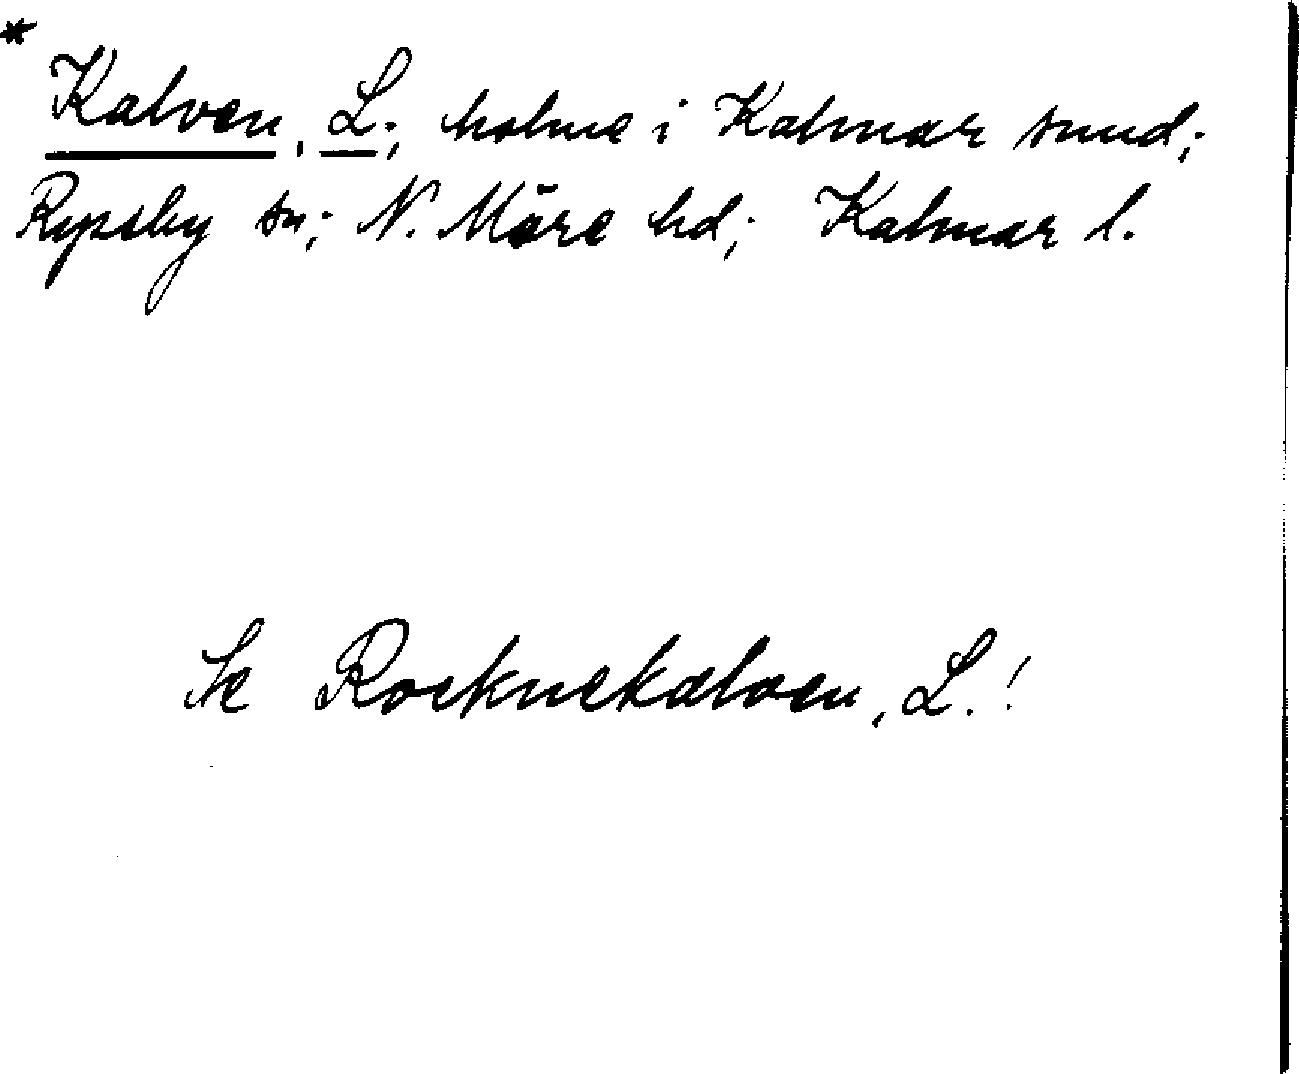 * Kalven, L.; holme i Kalmar sund;
Ryssby sn; N. Möre hd; Kalmar l.
Se Rocknekalven, L.!